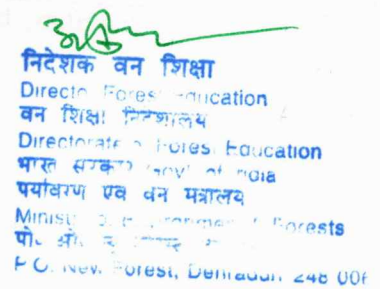 निदेशक वन शिक्षा
Directo Fores Education
वन शिक्षा निदेशालय
Directorate Fores Education
भारत सरकार Gov of India
पर्यावरण एव वन मत्रालय
Minist Forests
पो. ओ.
P.O. New Forest, Dehradun 248 006